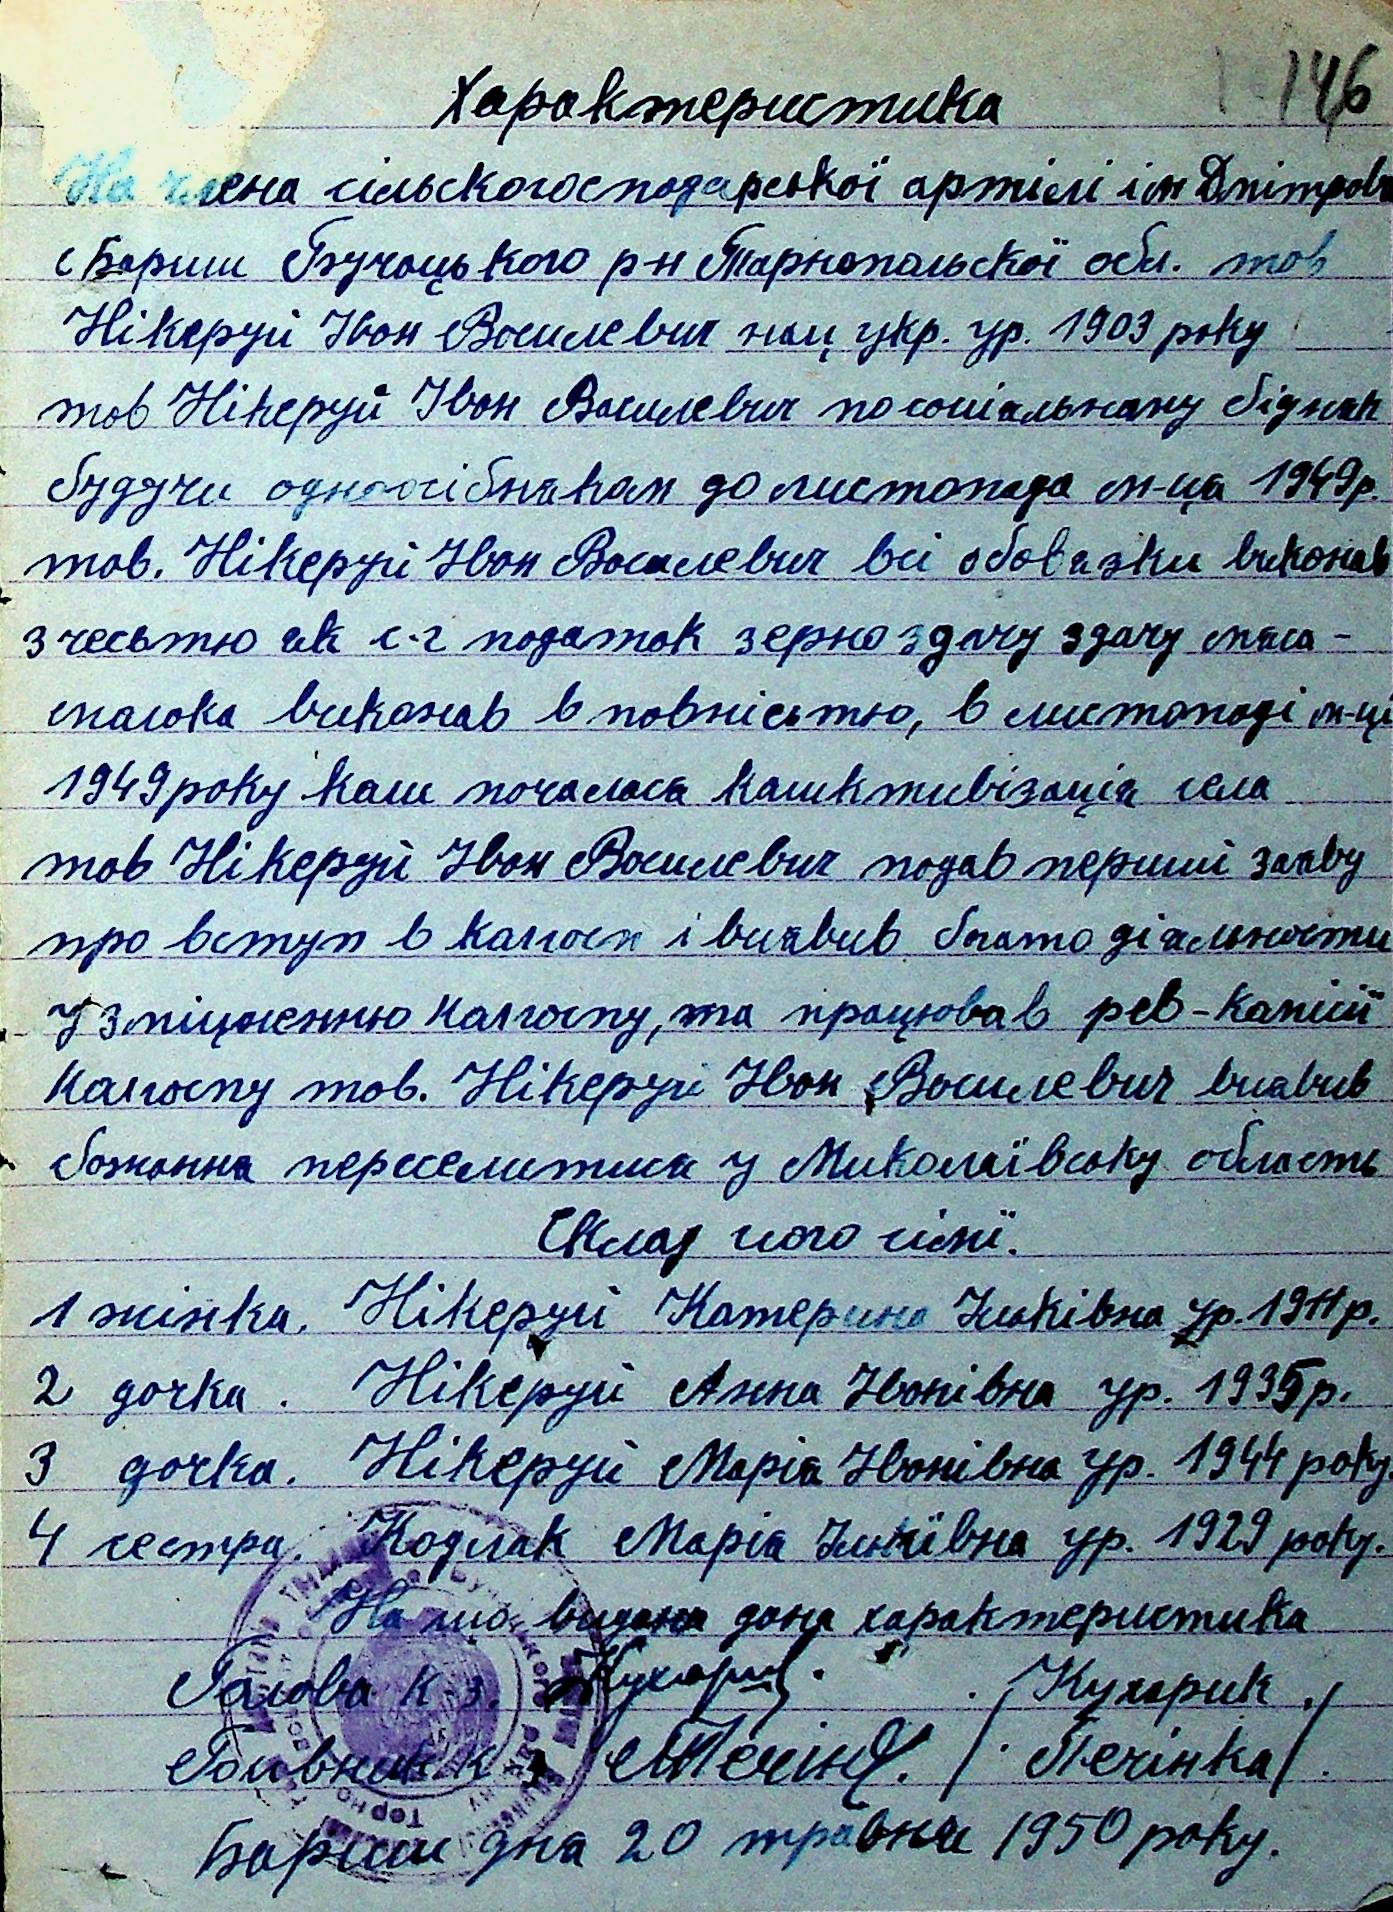 146
Характеристика
На члена сільськогосподарської артілі ім Дмітрова
с Бариш Бучацького р-н Тарнопольської обл. тов
Нікеруй Іван Василевич нац укр. ур. 1903 року
тов Нікеруй Іван Василевич по соціальному бідняк
будучи одноосібником до листопада м-ца 1949р.
тов. Нікеруй Іван Василевич всі обовязки виконав
з честью як с-г податок зерноздачу здачу мяса-
молока виконав в повністью, в листопаді м-ці
1949 року коли почалася колективізація села
тов Нікеруй Іван Василевич подав перший заяву
про вступ в колгосп і виявив багато діяльности
у зміцненню колгоспу, та працював рев-комісії
колгоспу тов. Нікеруй Іван Василевич виявив
бажання переселитися у Миколаївську область
Склад його сімї.
1 жінка. Нікеруй Катерина Ільківна ур. 1911р.
2 дочка. Нікеруй Анна Іванівна ур. 1935р.
3 дочка. Нікеруй Марія Іванівна ур. 1944 року.
4 сестра. Кодлак Марія Ільківна ур. 1929 року.
На що видана дана характеристика
Голова к з. Кухарик. /Кухарик/
Головник к з /Печінка/.
Бариш дня 20 травня 1950 року.